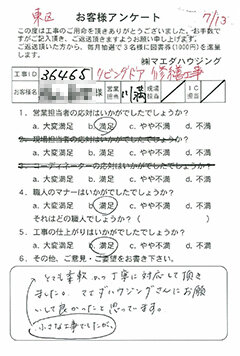 東区
お客様アンケート 7/13
この度は工事のご用命を頂きありがとうございました。お手数で
すがご記入頂き、ご返送頂きますようお願い申し上げます。
ご返送頂いた方から、毎月抽選で3名様に図書券(1000円)を進呈
します。
㈱マエダハウジング
工事ID 36465 リビングドア 修繕工事
お客様名 様 営業担当 川満 現場担当 IC担当
1. 営業担当者の応対はいかがでしたでしょうか?
a. 大変満足 b. 満足 c. やや不満 d. 不満
2. 現場担当者の応対はいかがでしたでしょうか?
a. 大変満足 b. 満足 c. やや不満 d. 不満
3. コーディネーターの応対はいかがでしたでしょうか?
a. 大変満足 b. 満足 c. やや不満 d. 不満
4. 職人のマナーはいかがでしたでしょうか?
a. 大変満足 b. 満足 c. やや不満 d. 不満
それはどの職人でしょうか? ( )
5. 工事の仕上がりはいかがでしたでしょうか?
a. 大変満足 b. 満足 c. やや不満 d. 不満
6. その他、ご意見・ご要望をお書き下さい。
とても柔軟かつ丁寧に対応して頂き
ました。マエダハウジングさんにお願
いして良かったと思っています。
小さな工事でしたが、